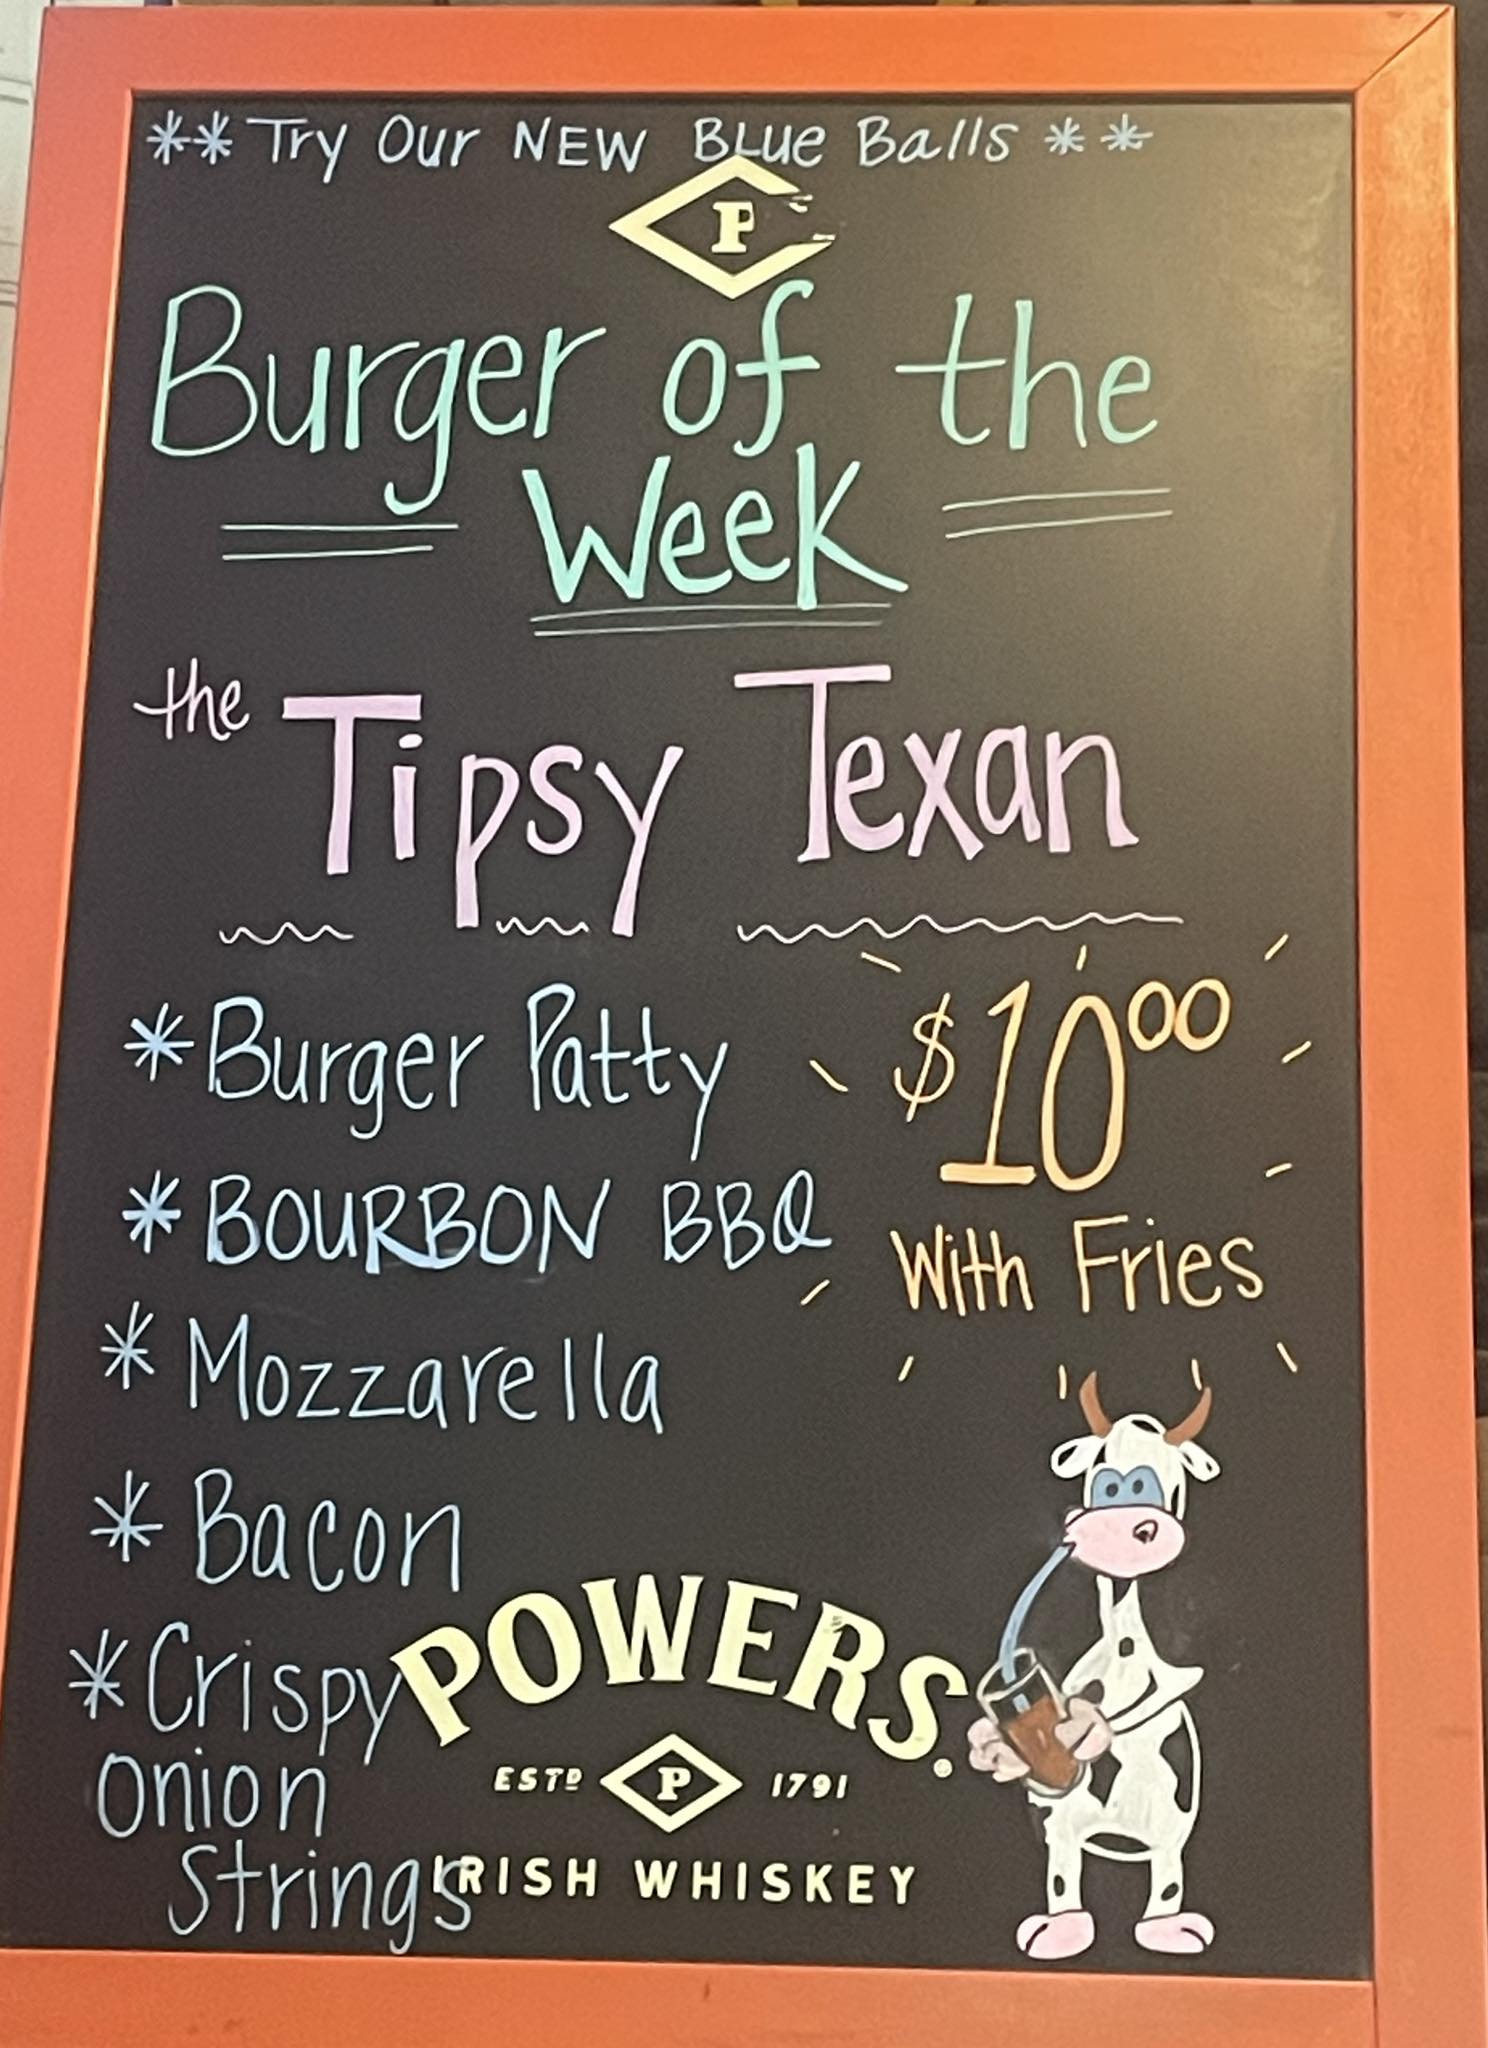 ** Try Our NEW BLue Balls **
P
Burger of the
Week
the Tipsy Texan
* Burger Patty
$10⁰⁰
* BOURBON BBQ
With Fries
* Mozzarella
* Bacon
* Crispy
Onion
Strings
POWERS®
ESTD P 1791
IRISH WHISKEY